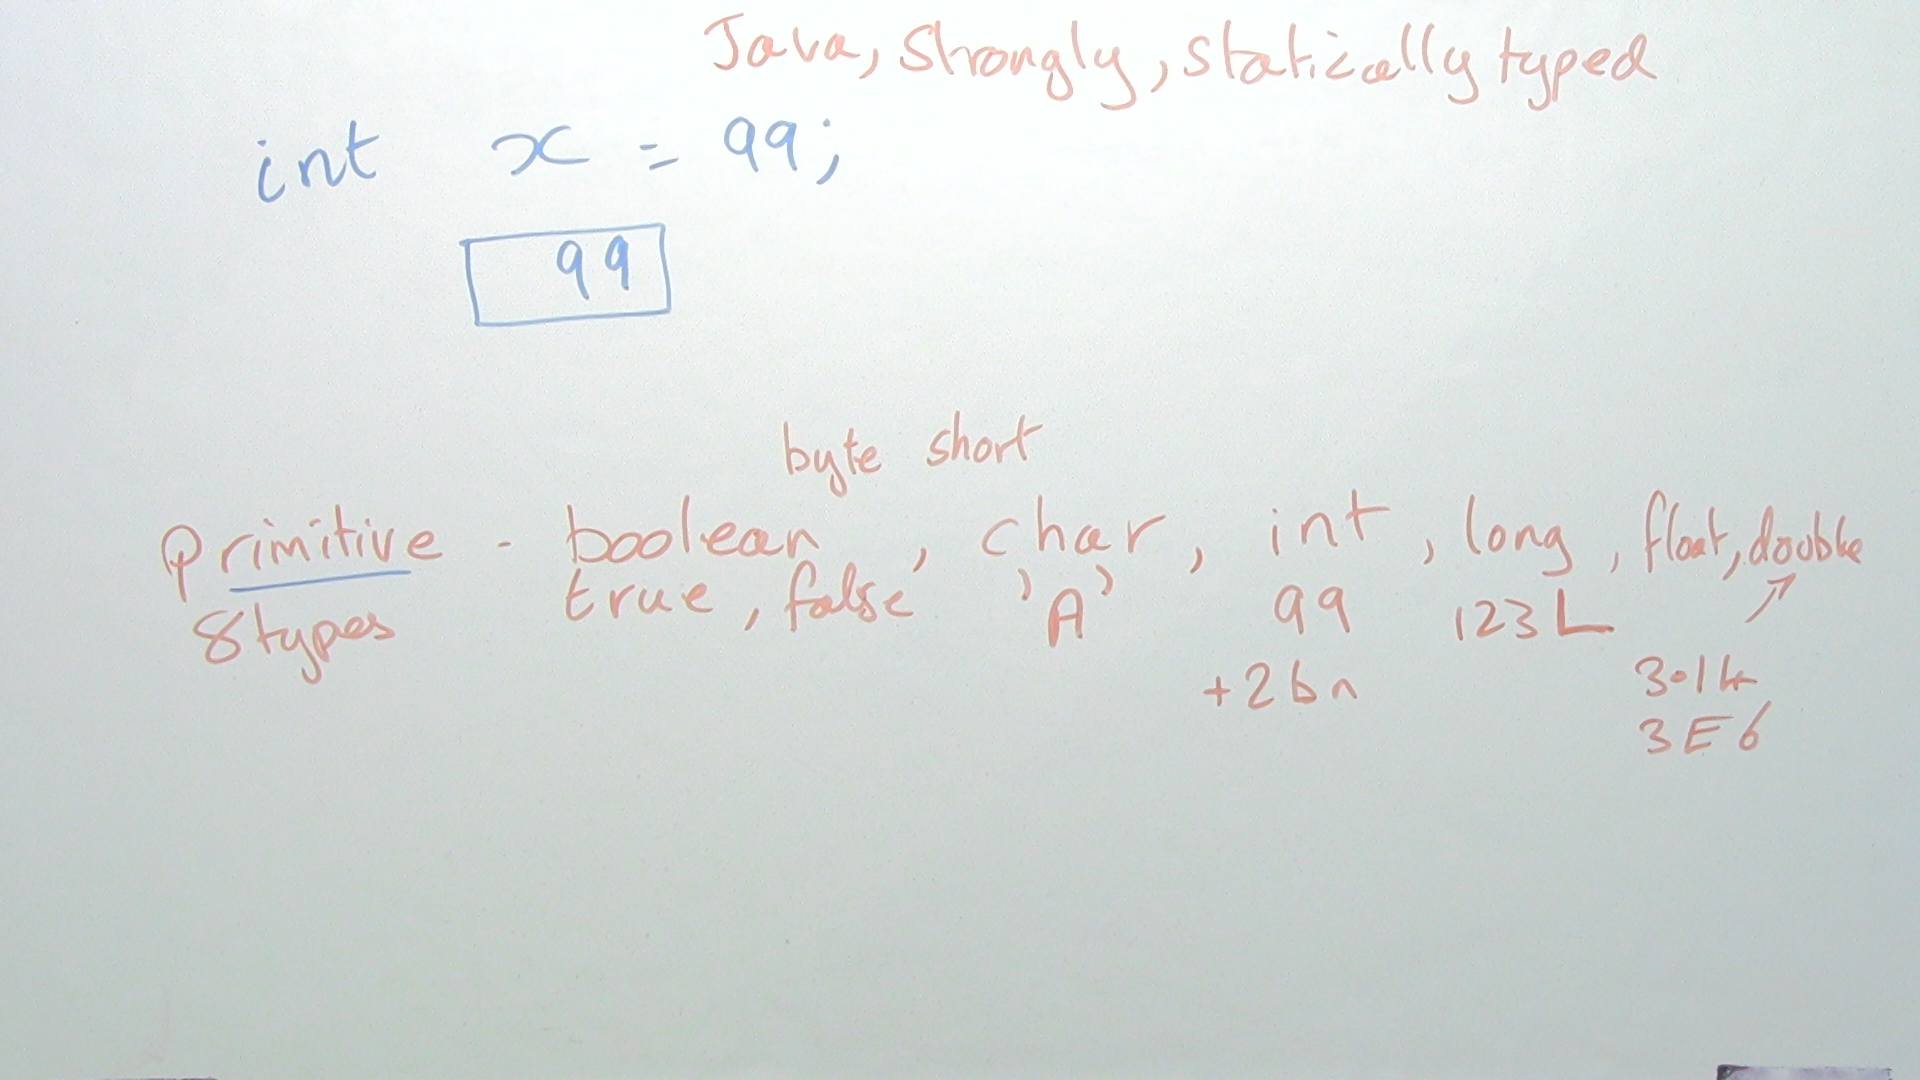 Java, Strongly, statically typed
int x = 99;
99
byte short
Primitive - boolean, char, int, long, float, double
8 types true, false 'A' 99 123L
+2bn 3.14
3E6